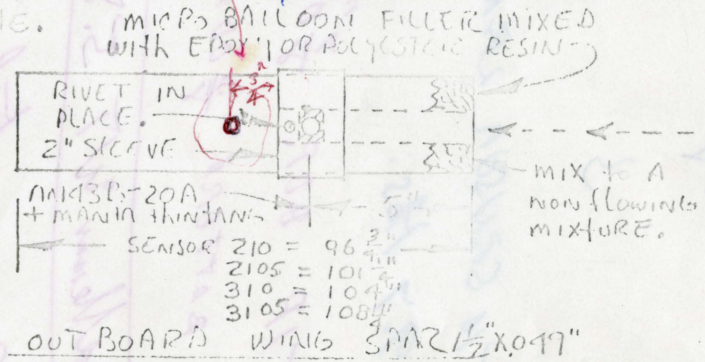 E. MICRO BALLOON FILLER MIXED
with EPOXY OR POLYESTRIC RESIN
3/4"
RIVET IN
PLACE.
2" SLEEVE
MIX TO A
NON FLOWING
MIXTURE.
+ MANTA
5"
SENSOR 210 = 96
2105 = 101
310 = 104
3105 = 108
OUTBOARD WING SPAR 1 1/2" X .049"